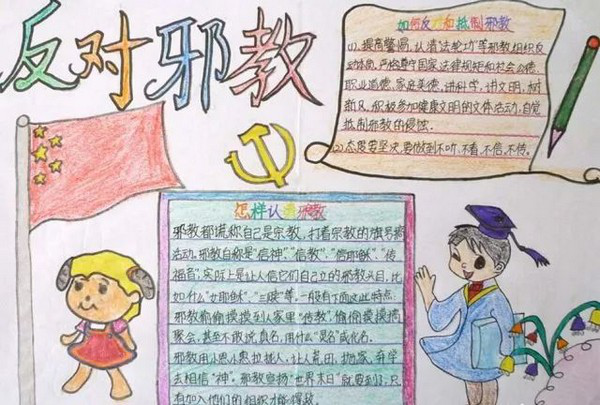 反对邪教
如何反对和抵制邪教
(1)、提高警惕,认清“法轮功”等邪教组织反
动本质,严格遵守国家法律规矩和社会公德
职业道德、家庭美德,讲科学,讲文明,树
新风,积极参加健康文明的文体活动,自觉
抵制邪教的侵蚀.
(2)态度要坚决,要做到不听、不看、不信、不传。
怎样认清邪教
邪教都谎称自己是宗教,打着宗教的旗号搞
活动,邪教自称是“信神”、“信教”、“信耶稣”、“传
福音”,实际上是让人信它们自己立的邪教头目,比
如什么“女耶稣”、“三赎”等,一般有下面这些特点:
邪教偷偷摸摸到人家里“传教”,偷偷摸摸搞
聚会,甚至不敢说真名,用什么“灵名”或化名.
邪教用小恩小惠拉拢人,让人荒田、抛家、弃学
去相信“神”。邪教宣扬“世界末日”就要到了,只
有加入他们的组织才能得救.